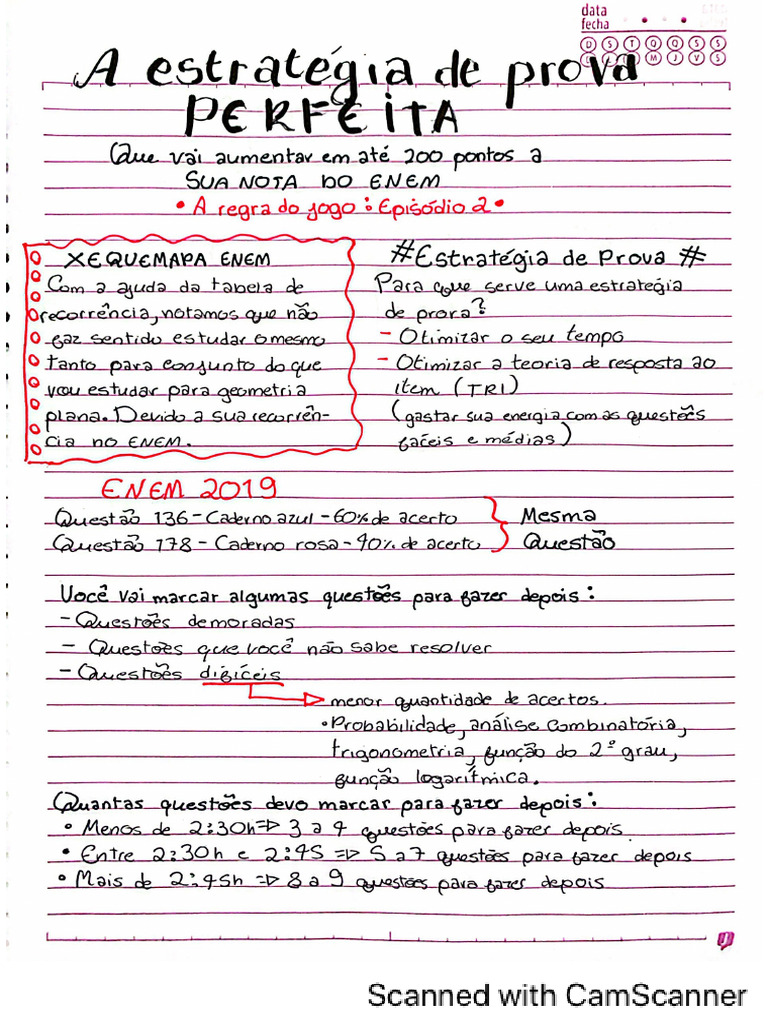 data
fecha
D S T Q Q S S
A estratégia de prova
PERFEITA
Que vai aumentar em até 200 pontos a
SUA NOTA DO ENEM
• A regra do jogo: Episódio 2 •
XEQUEMAPA ENEM
Com a ajuda da tabela de
recorrência, notamos que não
faz sentido estudar o mesmo
tanto para conjunto do que
vou estudar para geometria
plana. Devido a sua recorrên-
cia no ENEM.
#Estratégia de Prova #
Para que serve uma estratégia
de prova?
- Otimizar o seu tempo
- Otimizar a teoria de resposta ao
item (TRI)
(gastar sua energia com as questões
fáceis e médias)
ENEM 2019
Questão 136 - Caderno azul - 60% de acerto
Questão 178 - Caderno rosa - 40% de acerto
Mesma
Questão
Você vai marcar algumas questões para fazer depois:
- Questões demoradas
- Questões que você não sabe resolver
- Questões difíceis
menor quantidade de acertos.
• Probabilidade, análise combinatória,
trigonometria, função do 2° grau,
função logarítmica.
Quantas questões devo marcar para fazer depois:
• Menos de 2:30h => 3 a 4 questões para fazer depois.
• Entre 2:30h e 2:45 => 5 a 7 questões para fazer depois
• Mais de 2:45h => 8 a 9 questões para fazer depois
Scanned with CamScanner